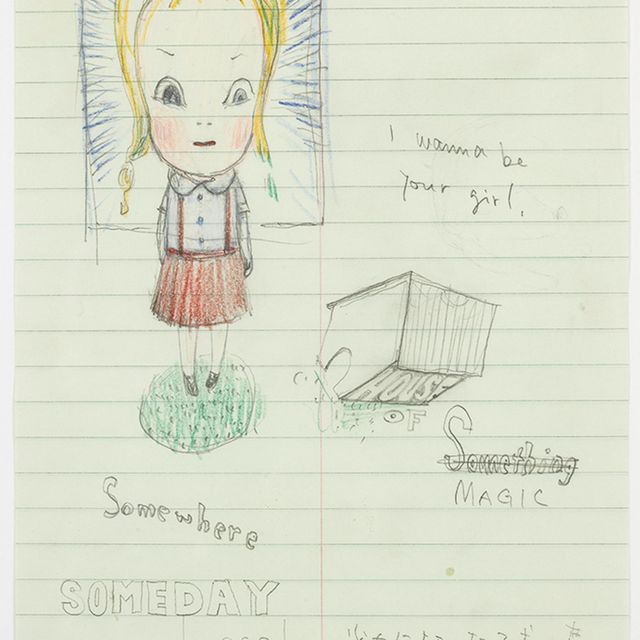 I wanna be
your girl.
HOUSE
OF
Something
MAGIC
Somewhere
SOMEDAY